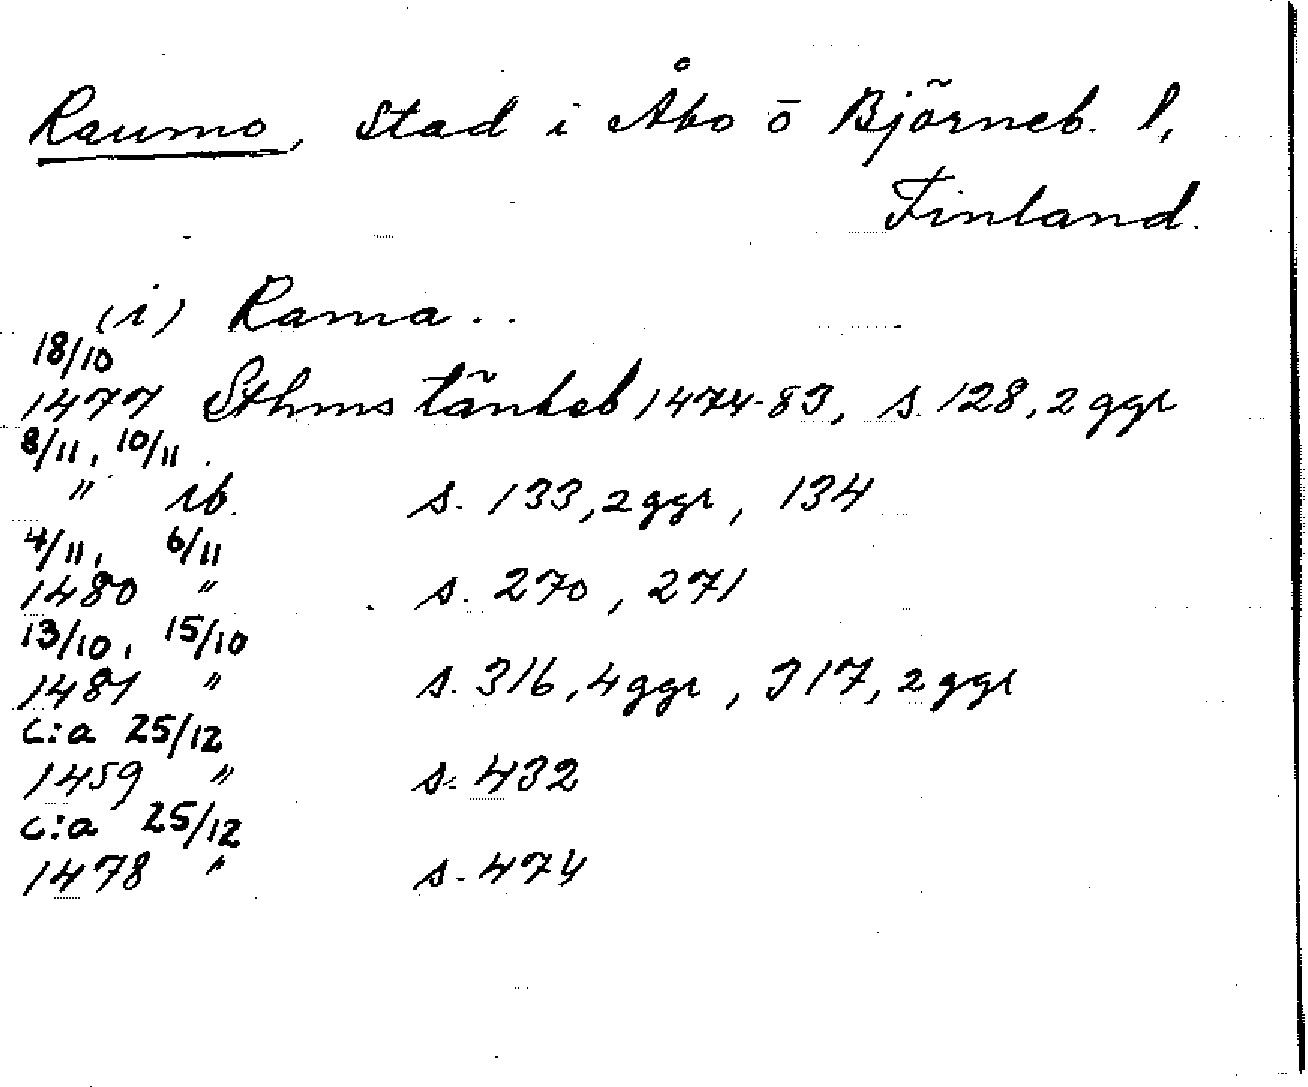 Raumo, Stad i Åbo o Björneb. l,
Finland.
(i) Rama..
18/10
1477 Sthms tänkeb 1474-83, s. 128, 2 ggr
8/11, 10/11.
" ib. s. 133, 2 ggr, 134
4/11, 6/11
1480 " s. 270, 271
13/10, 15/10
1481 " s. 316, 4 ggr, 317, 2 ggr
c:a 25/12
1459 " s. 432
c:a 25/12
1478 " s. 474